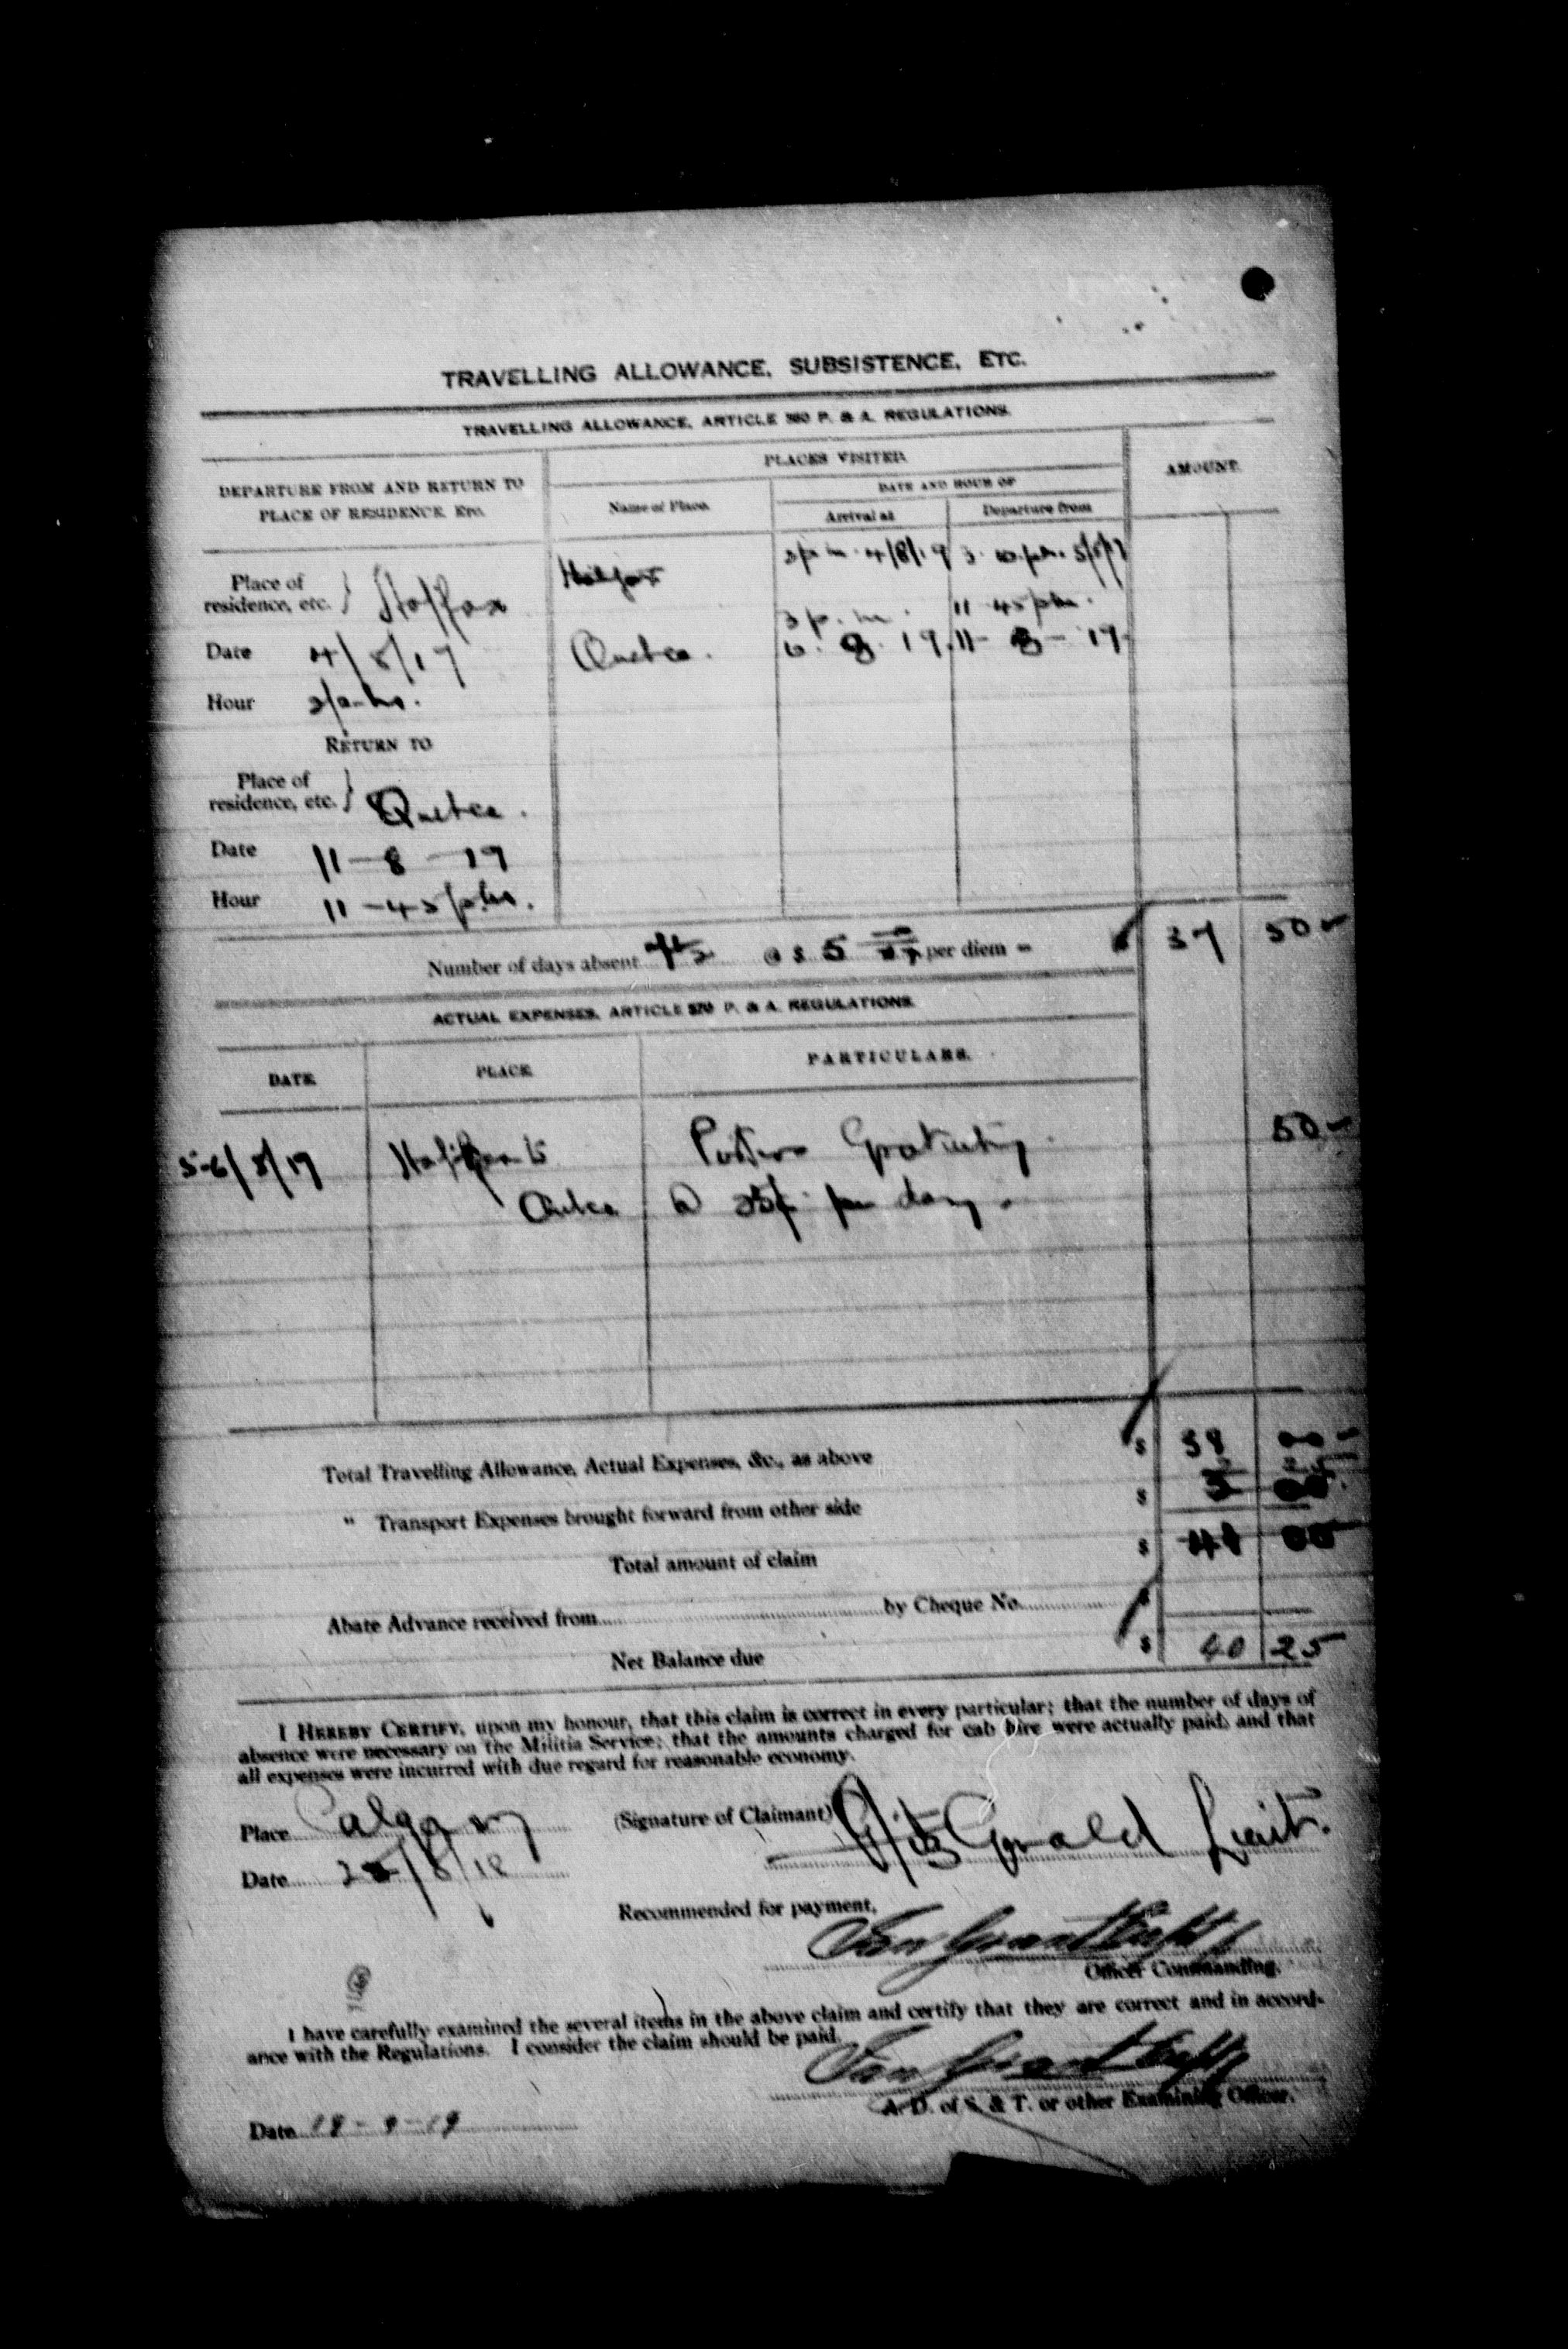 TRAVELLING ALLOWANCE, SUBSISTENCE, ETC.
TRAVELLING ALLOWANCE, ARTICLE P. & A. REGULATIONS.
DEPARTURE FROM AND RETURN TO
PLACE OF RESIDENCE, ETC.
PLACES VISITED.
AMOUNT.
Name of Place.
DATE AND HOUR OF
Arrival at
Departure from
Place of
residence, etc. } Halifax
Date 4/8/19
Hour
Halifax 4/8/19
3 p.m. 11 45 pm.
Quebec. 6. 8. 19. 11- 8- 19.
RETURN TO
Place of
residence, etc. } Quebec.
Date 11-8-19
Hour 11-45 pm.
Number of days absent @ $ 5 per diem = 37 50
ACTUAL EXPENSES, ARTICLE 570 P. & A. REGULATIONS.
DATE. PLACE. PARTICULARS.
5-6/8/19 Halifax to Porters Gratuity 50
Quebec @ 25¢ per day.
Total Travelling Allowance, Actual Expenses, &c., as above $ 38 00
" Transport Expenses brought forward from other side $
Total amount of claim $
Abate Advance received from by Cheque No.
Net Balance due $ 40 25
I HEREBY CERTIFY, upon my honour, that this claim is correct in every particular; that the number of days of
absence were necessary on the Militia Service; that the amounts charged for cab hire were actually paid, and that
all expenses were incurred with due regard for reasonable economy.
Place Calgary
(Signature of Claimant) FitzGerald Lieut.
Date
Recommended for payment,
Ian Grant Capt
Officer Commanding.
I have carefully examined the several items in the above claim and certify that they are correct and in accord-
ance with the Regulations. I consider the claim should be paid.
Ian Grant Capt
A. D. of S. & T. or other Examining Officer.
Date 18-9-19